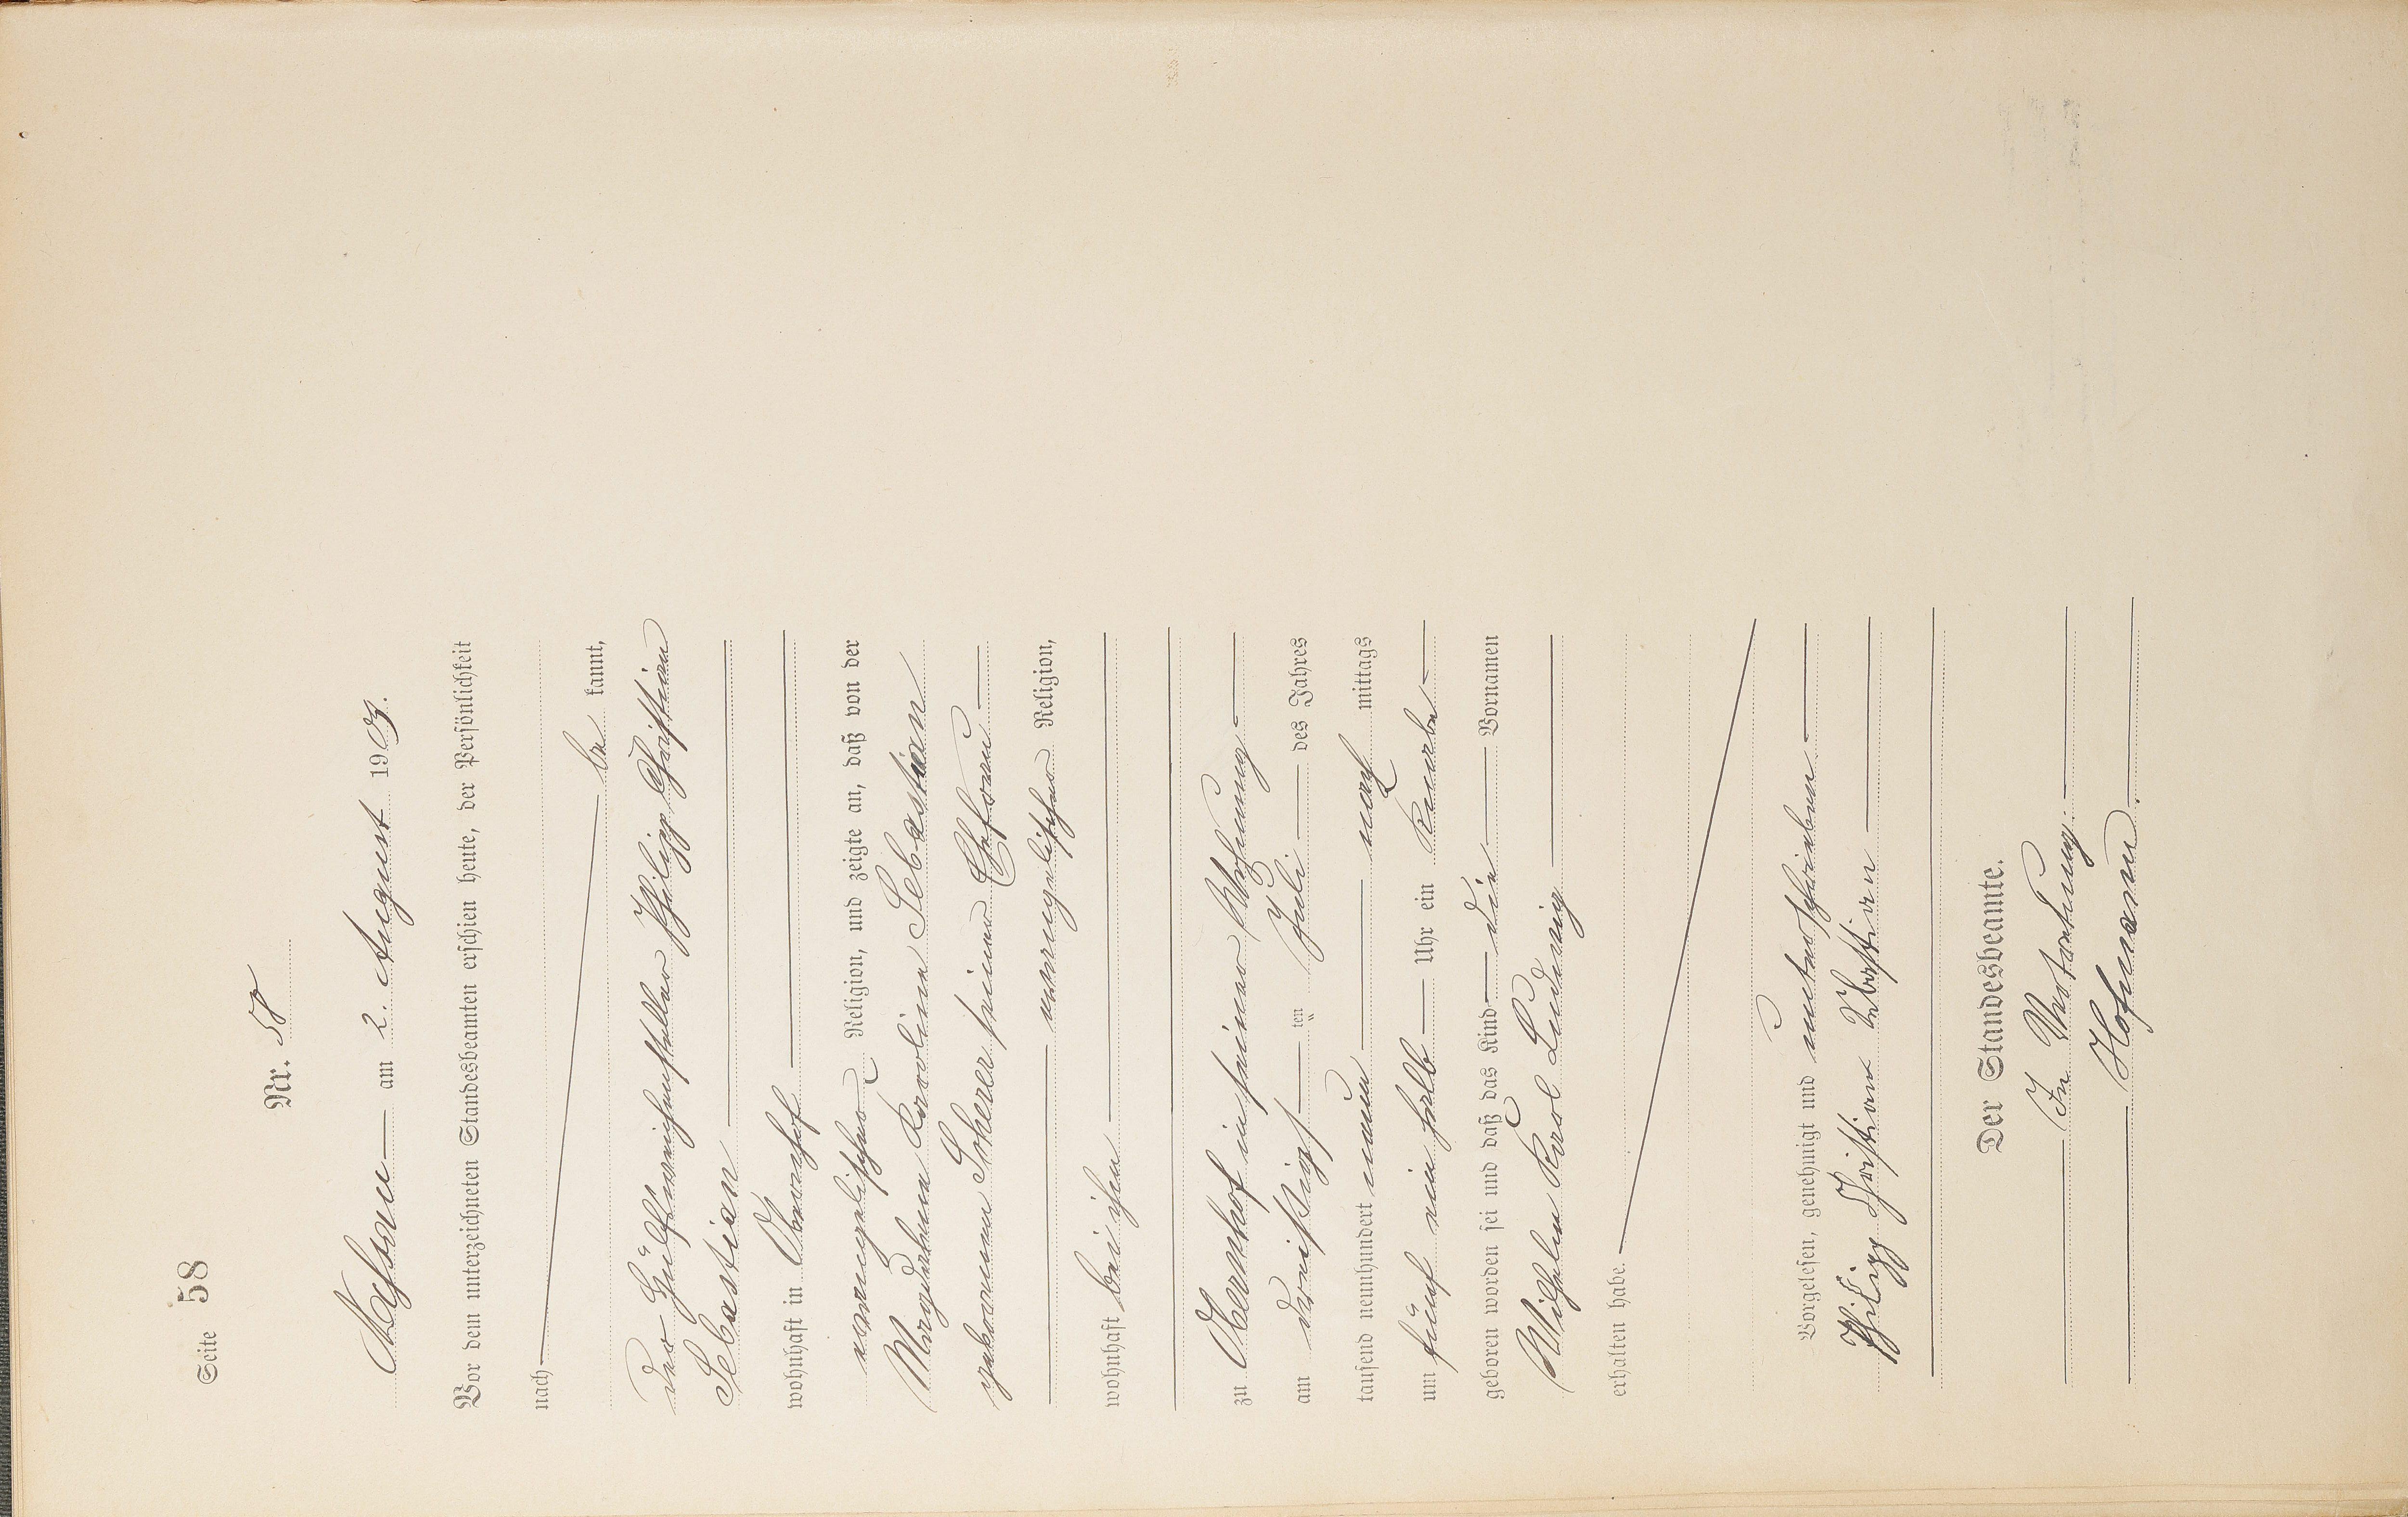 Seite 58
Nr. 58
Nassau am 2. August 1909.
Vor dem unterzeichneten Standesbeamten erschien heute, der Persönlichkeit
nach
be kannt,
der Hülfsweichensteller Philipp Christian
Sebastian
wohnhaft in Obernhof
evangelischer Religion, und zeigte an, daß von der
Magdalena Karoline Sebastian
geborenen Scherer seiner Ehefrau
evangelischer Religion,
wohnhaft bei ihm
zu Obernhof in seiner Wohnung
am dreißigsten Juli des Jahres
tausend neunhundert neun nach mittags
um fünf ein halb Uhr ein Knabe
geboren worden sei und daß das Kind die Vornamen
Wilhelm Karl Ludwig
erhalten habe.
Vorgelesen, genehmigt und unterschrieben
Philipp Christian Sebastian
Der Standesbeamte.
In Vertretung:
Hofmann.